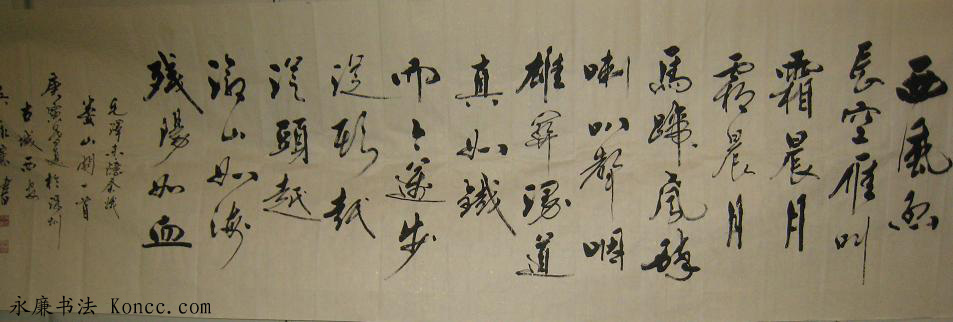 西風烈
長空雁叫
霜晨月
霜晨月
馬蹄声碎
喇叭聲咽
雄関漫道
真如鐵
而今邁步
從頭越
從頭越
蒼山如海
殘陽如血
毛澤東憶秦娥
婁山関一首
庚寅於深圳
古城西安
永廉書
永廉书法 Koncc.com